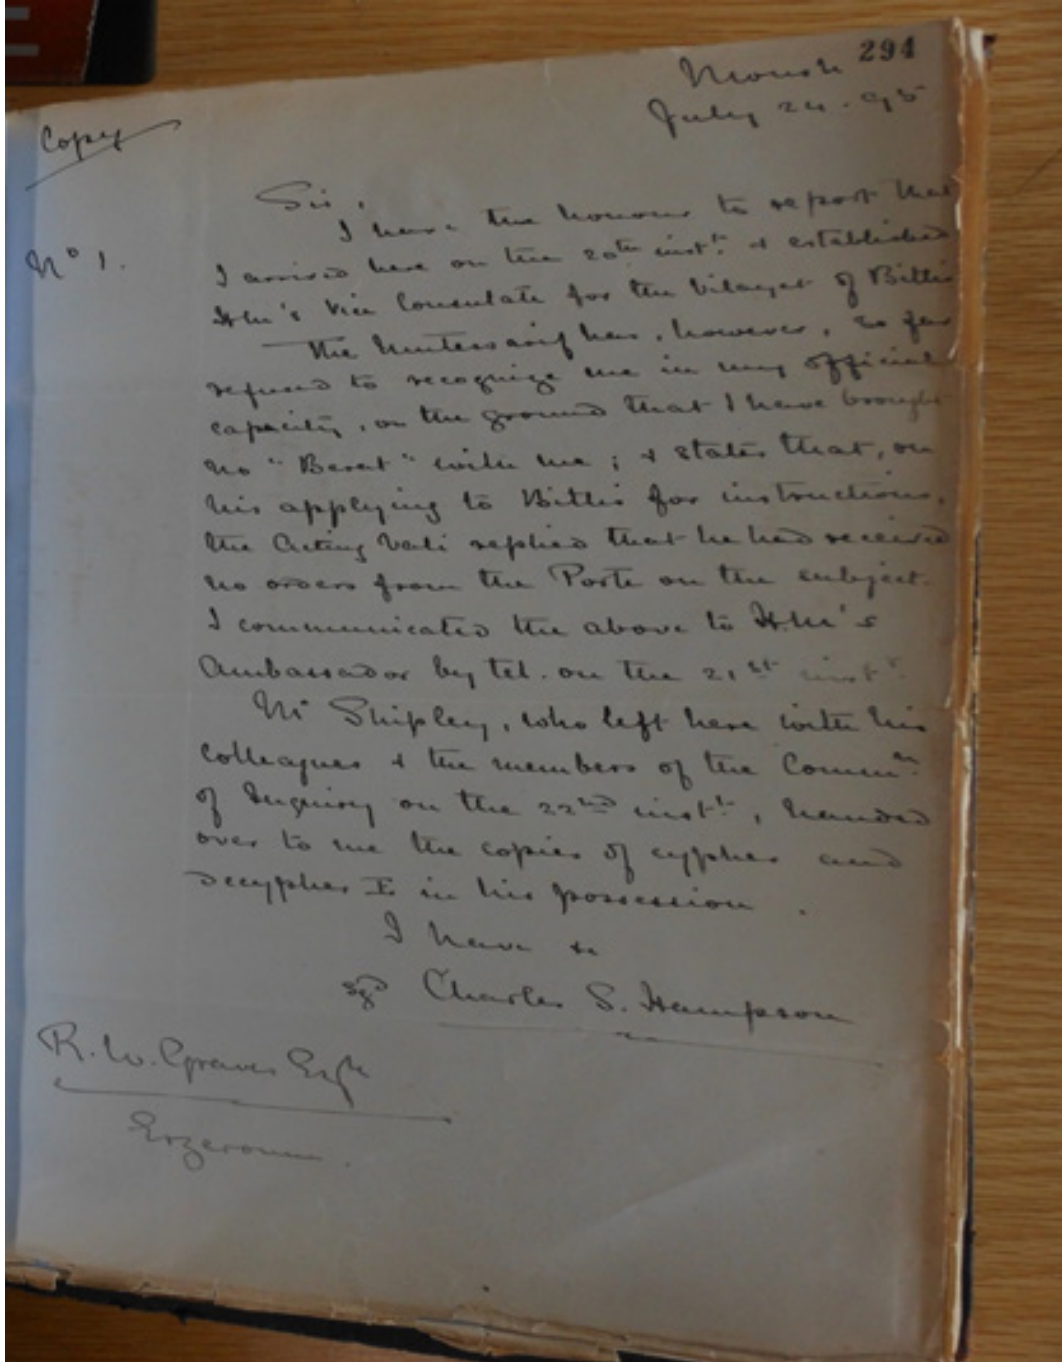 294
Moush
July 24. 95
Copy
Sir,
I have the honour to report that
No 1.
I arrived here on the 20th inst. & established
H.M's Vice Consulate for the Vilayet of Bitlis
The Mutessarif has, however, so far
refused to recognize me in my official
capacity, on the ground that I have brought
no "Berat" with me; & states that, on
his applying to Bitlis for instructions,
the Acting Vali replied that he had received
no orders from the Porte on the subject.
I communicated the above to H.M's
Ambassador by tel. on the 21st inst.
Mr Shipley, who left here with his
colleagues & the members of the Commn.
of Inquiry on the 22nd inst., handed
over to me the copies of cypher and
decypher I in his possession.
I have &c
sgd Charles S. Hampson
R. W. Graves Esqre
Erzeroum.